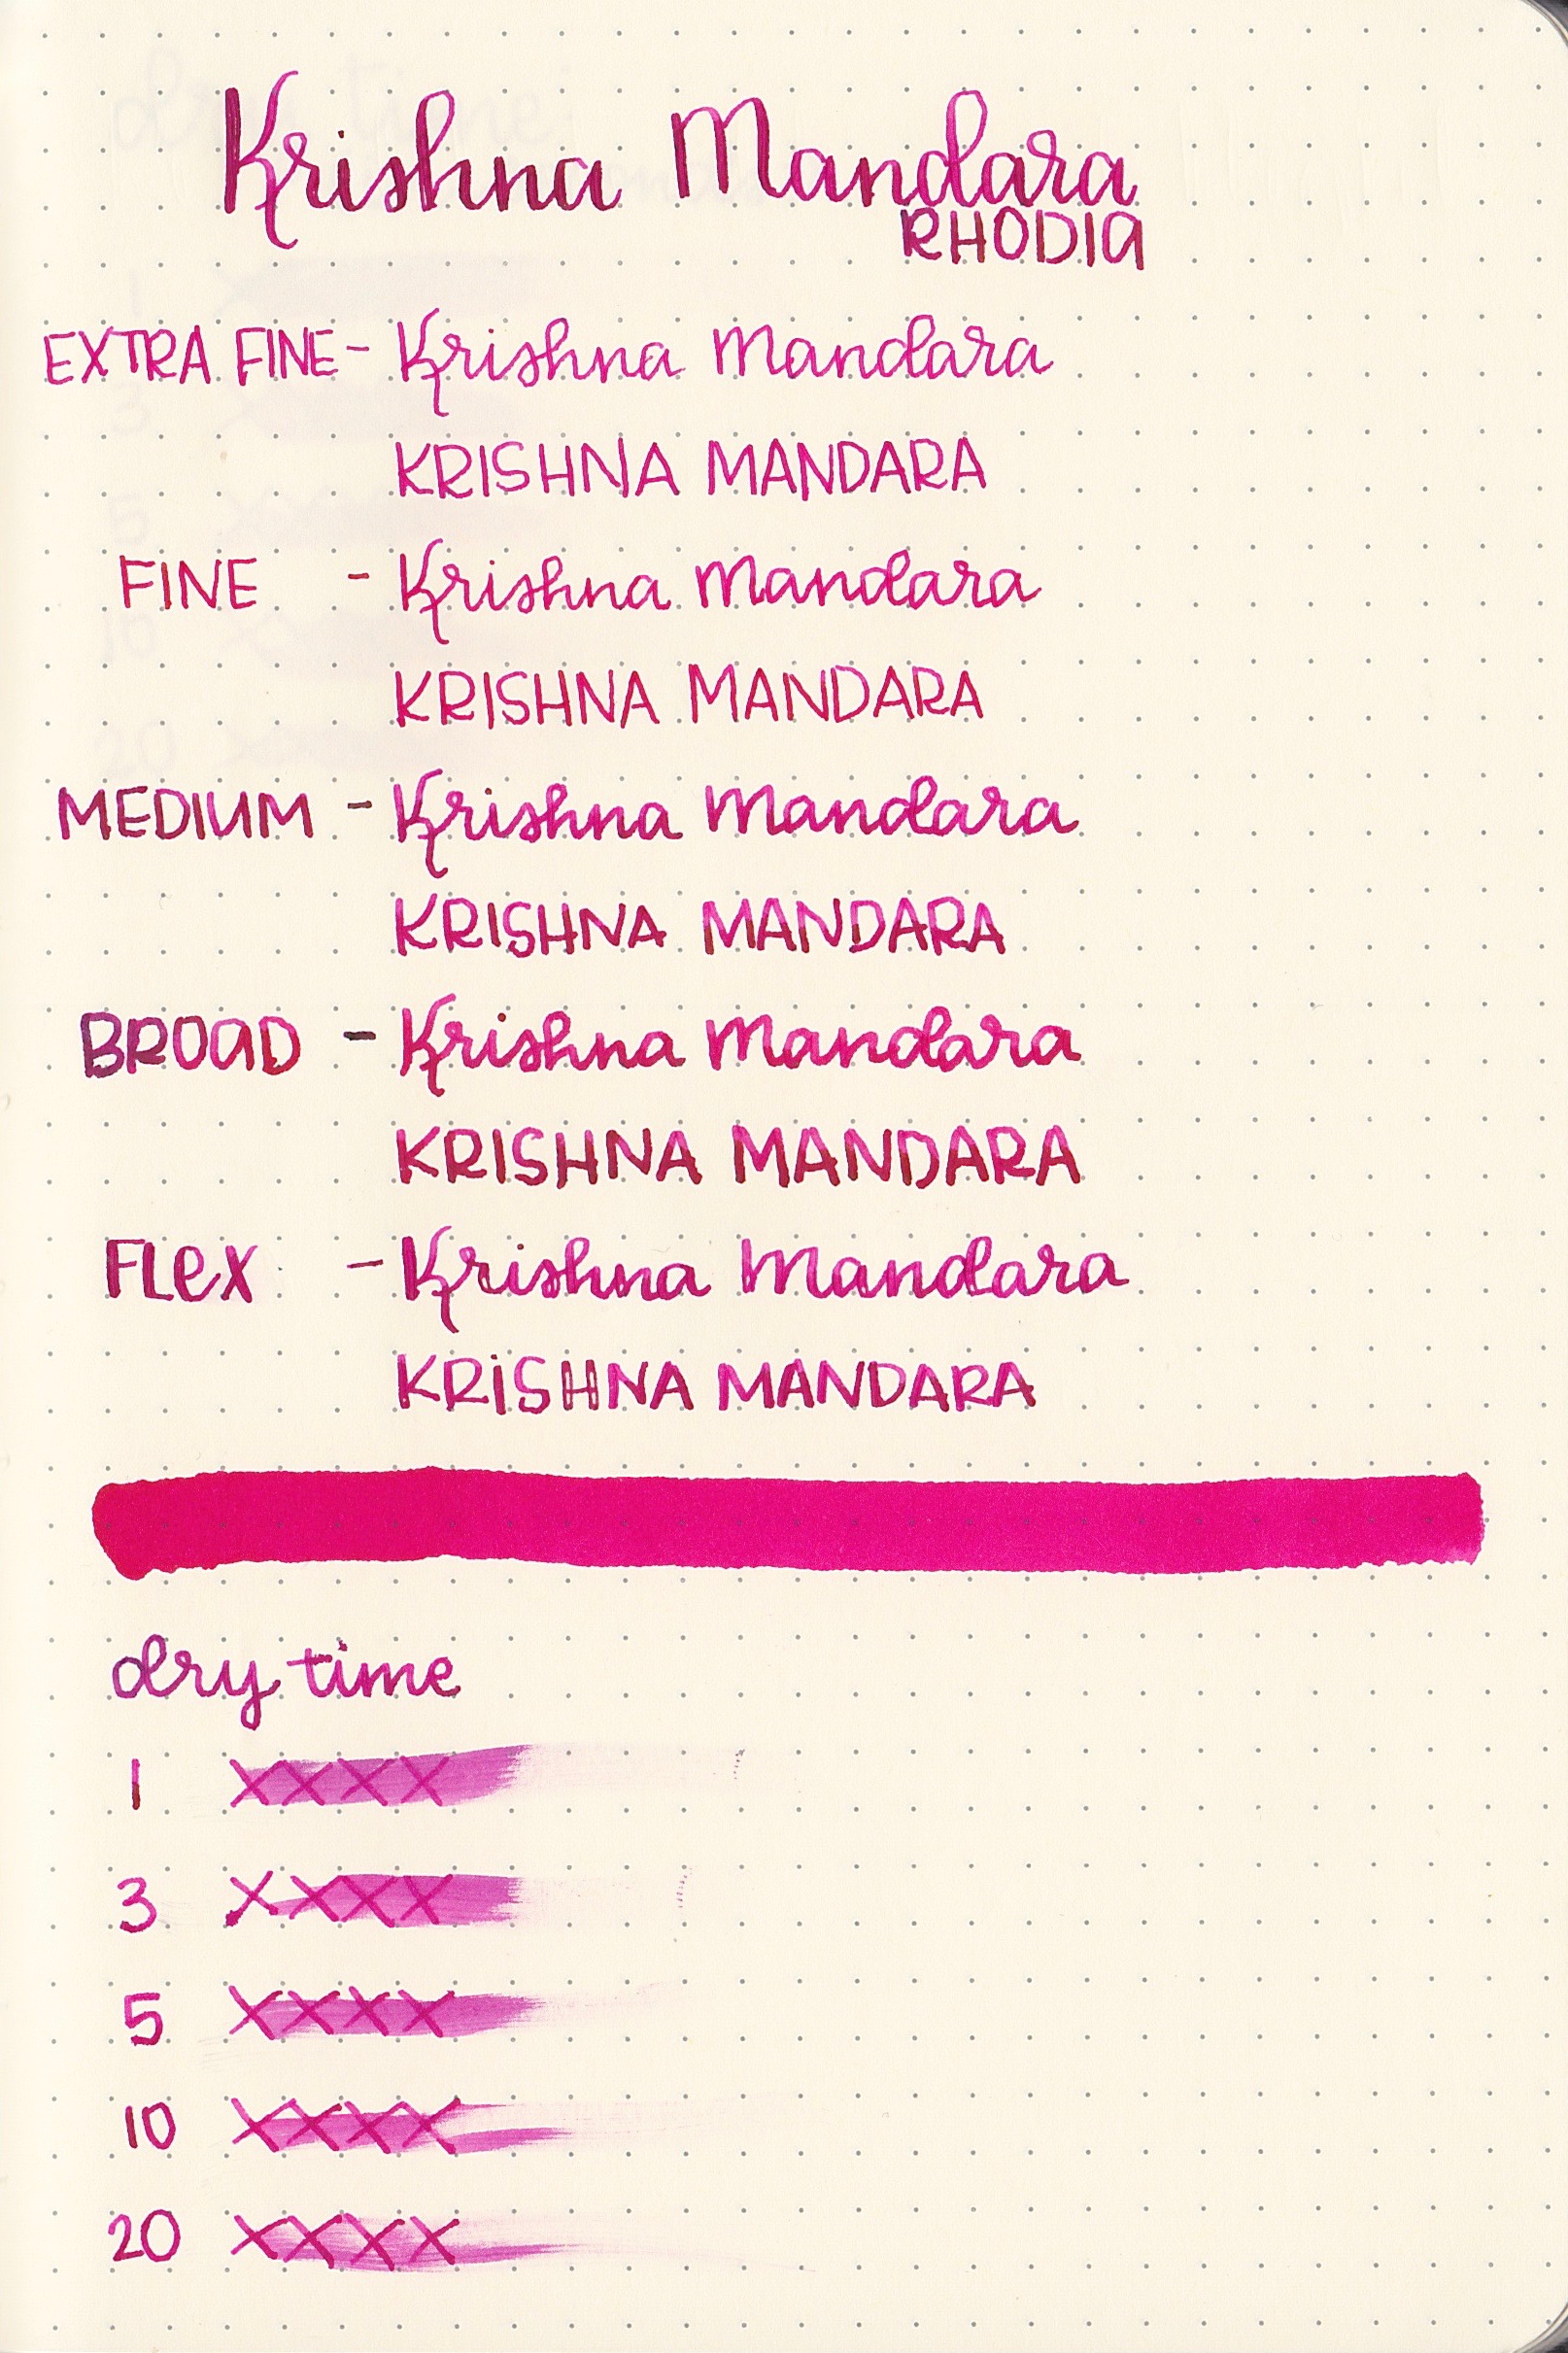 Krishna Mandara
RHODIA
EXTRA FINE - Krishna Mandara
KRISHNA MANDARA
FINE - Krishna Mandara
KRISHNA MANDARA
MEDIUM - Krishna Mandara
KRISHNA MANDARA
BROAD - Krishna Mandara
KRISHNA MANDARA
FLEX - Krishna Mandara
KRISHNA MANDARA
dry time
1 XXXX
3 XXXX
5 XXXX
10 XXXX
20 XXXX